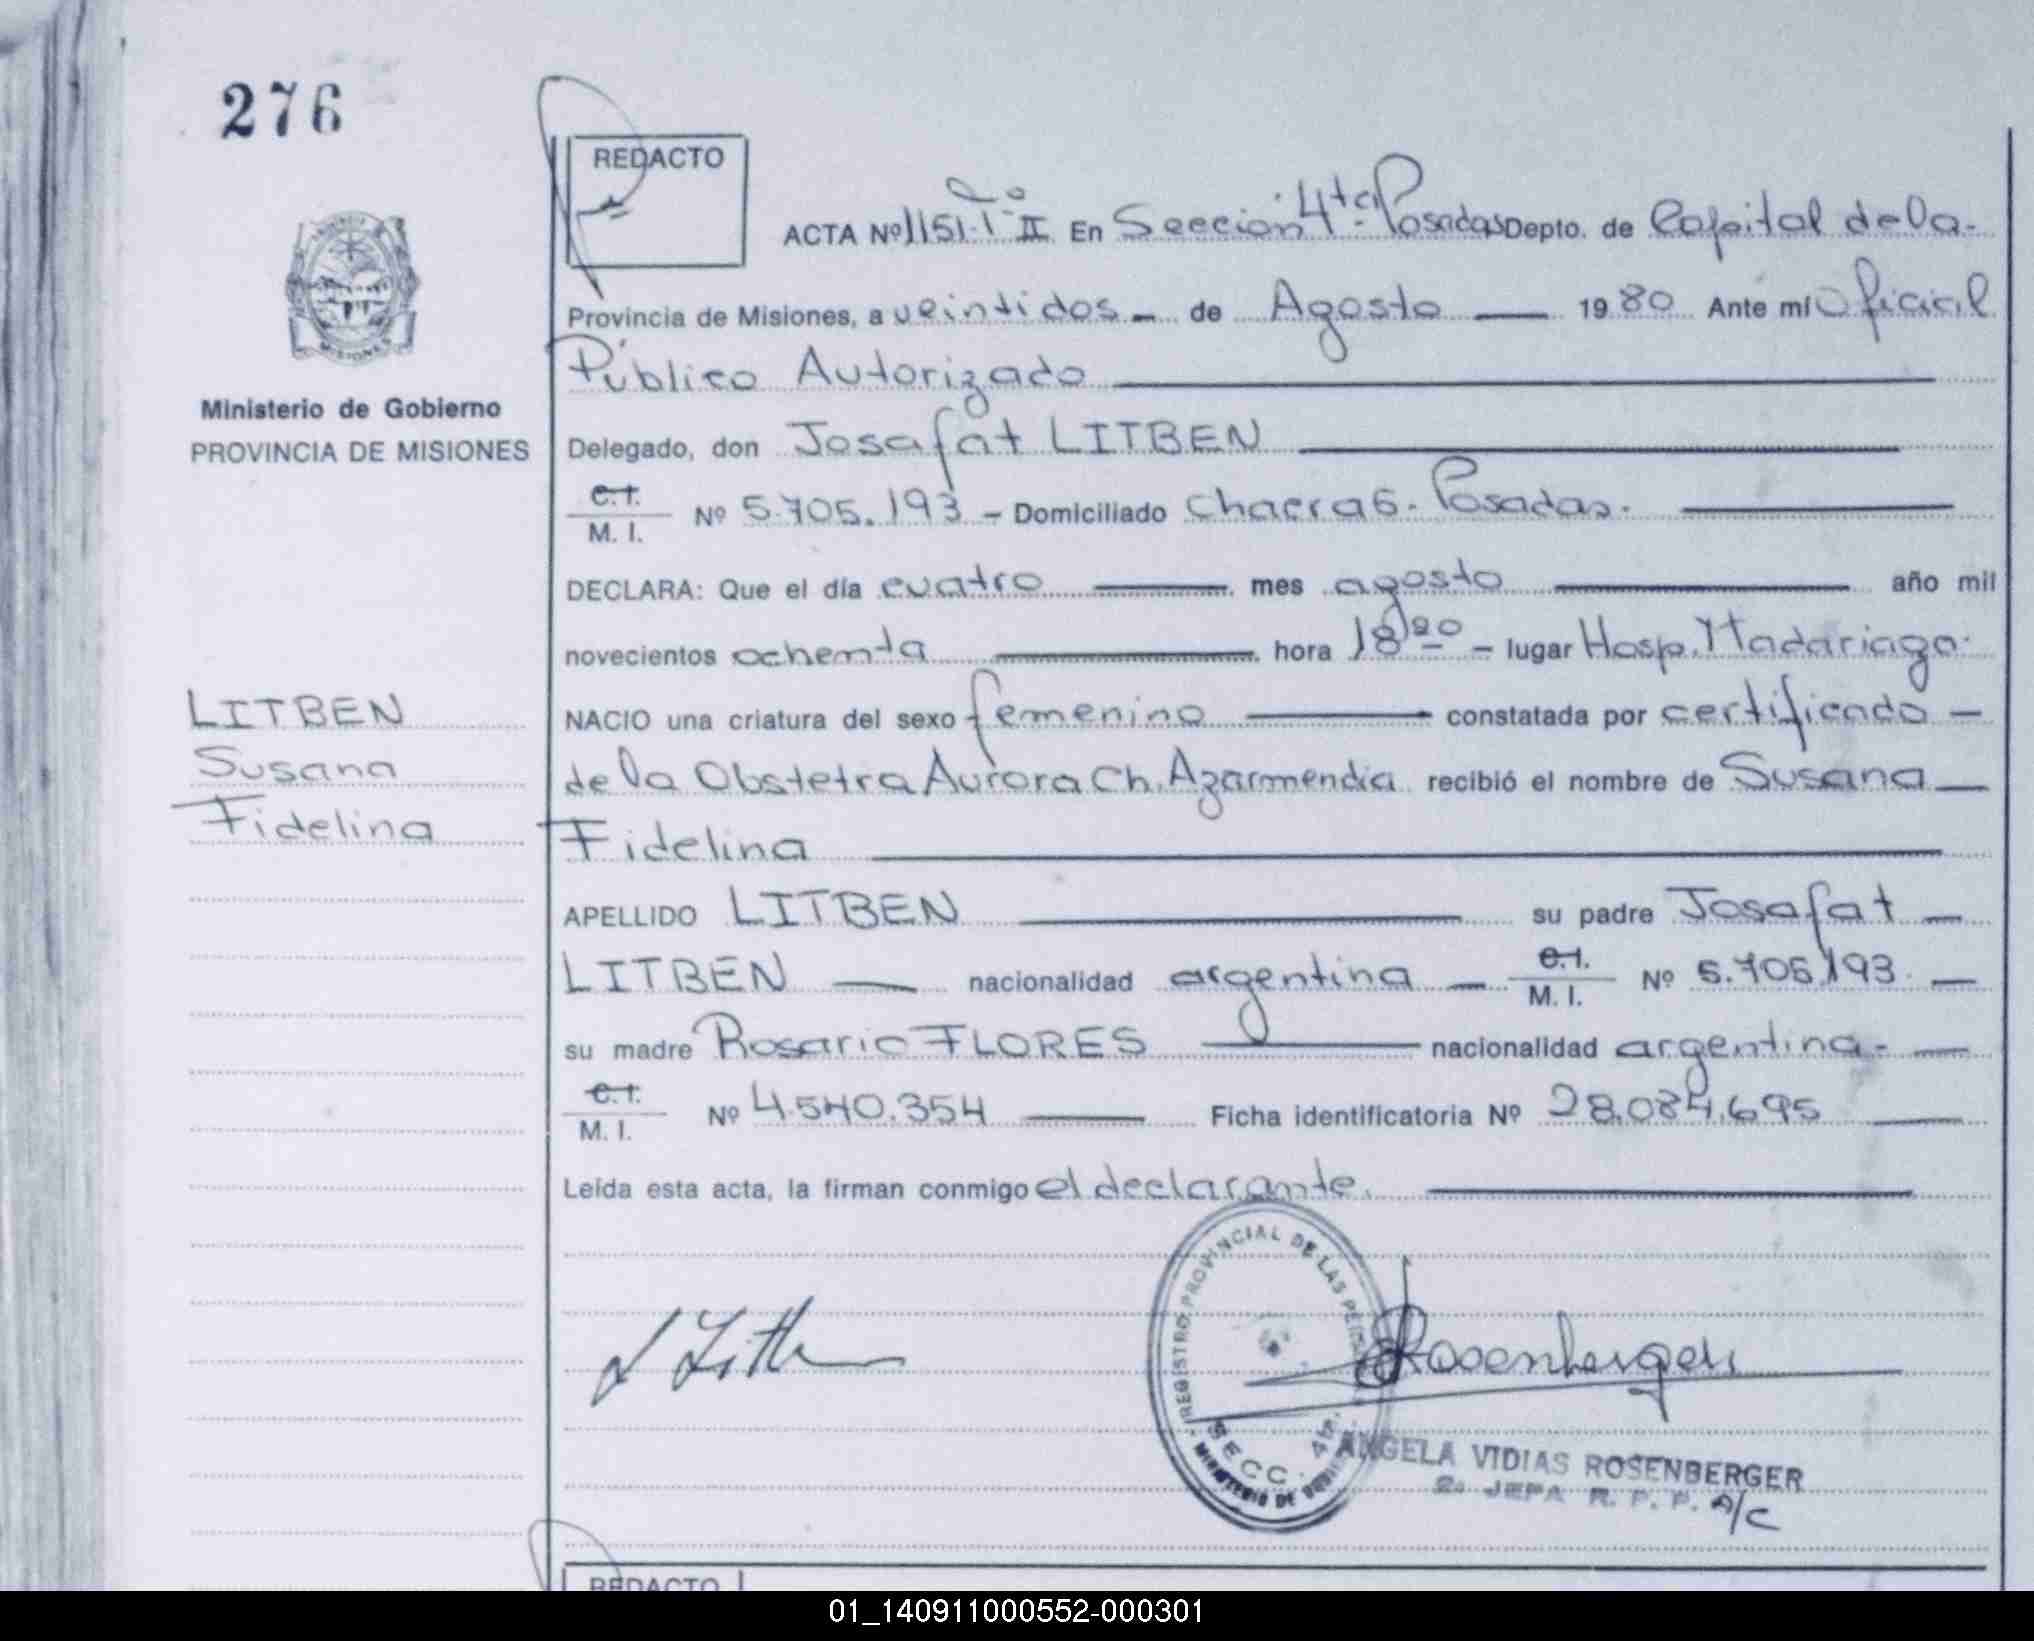 276
REDACTO
ACTA Nº 1151-Tº II En Sección 4ta. Posadas Depto. de Capital de la-
Provincia de Misiones, a veintidos - de Agosto 1980 Ante mí Oficial
Público Autorizado
Ministerio de Gobierno
PROVINCIA DE MISIONES
Delegado, don Josafat LITBEN
C.I.
M. I. Nº 5.705.193 - Domiciliado Chacra 6. Posadas.
DECLARA: Que el día cuatro mes agosto año mil
novecientos ochenta hora 18,20 - lugar Hosp. Madariaga.
LITBEN
Susana
Fidelina
NACIO una criatura del sexo femenino constatada por certificado -
de la Obstetra Aurora Ch. Azarmendia recibió el nombre de Susana
Fidelina
APELLIDO LITBEN su padre Josafat
LITBEN nacionalidad argentina C.I.
M. I. Nº 5.705.193
su madre Rosario FLORES nacionalidad argentina-
C.I.
M. I. Nº 4.540.354 Ficha identificatoria Nº 28.084.695
Leída esta acta, la firman conmigo el declarante.
REGISTRO PROVINCIAL DE LAS
SECC. 4ta.
MINISTERIO DE
Rosenberger
ANGELA VIDIAS ROSENBERGER
2a JEFA R. P. P. A/C
REDACTO
01_140911000552-000301